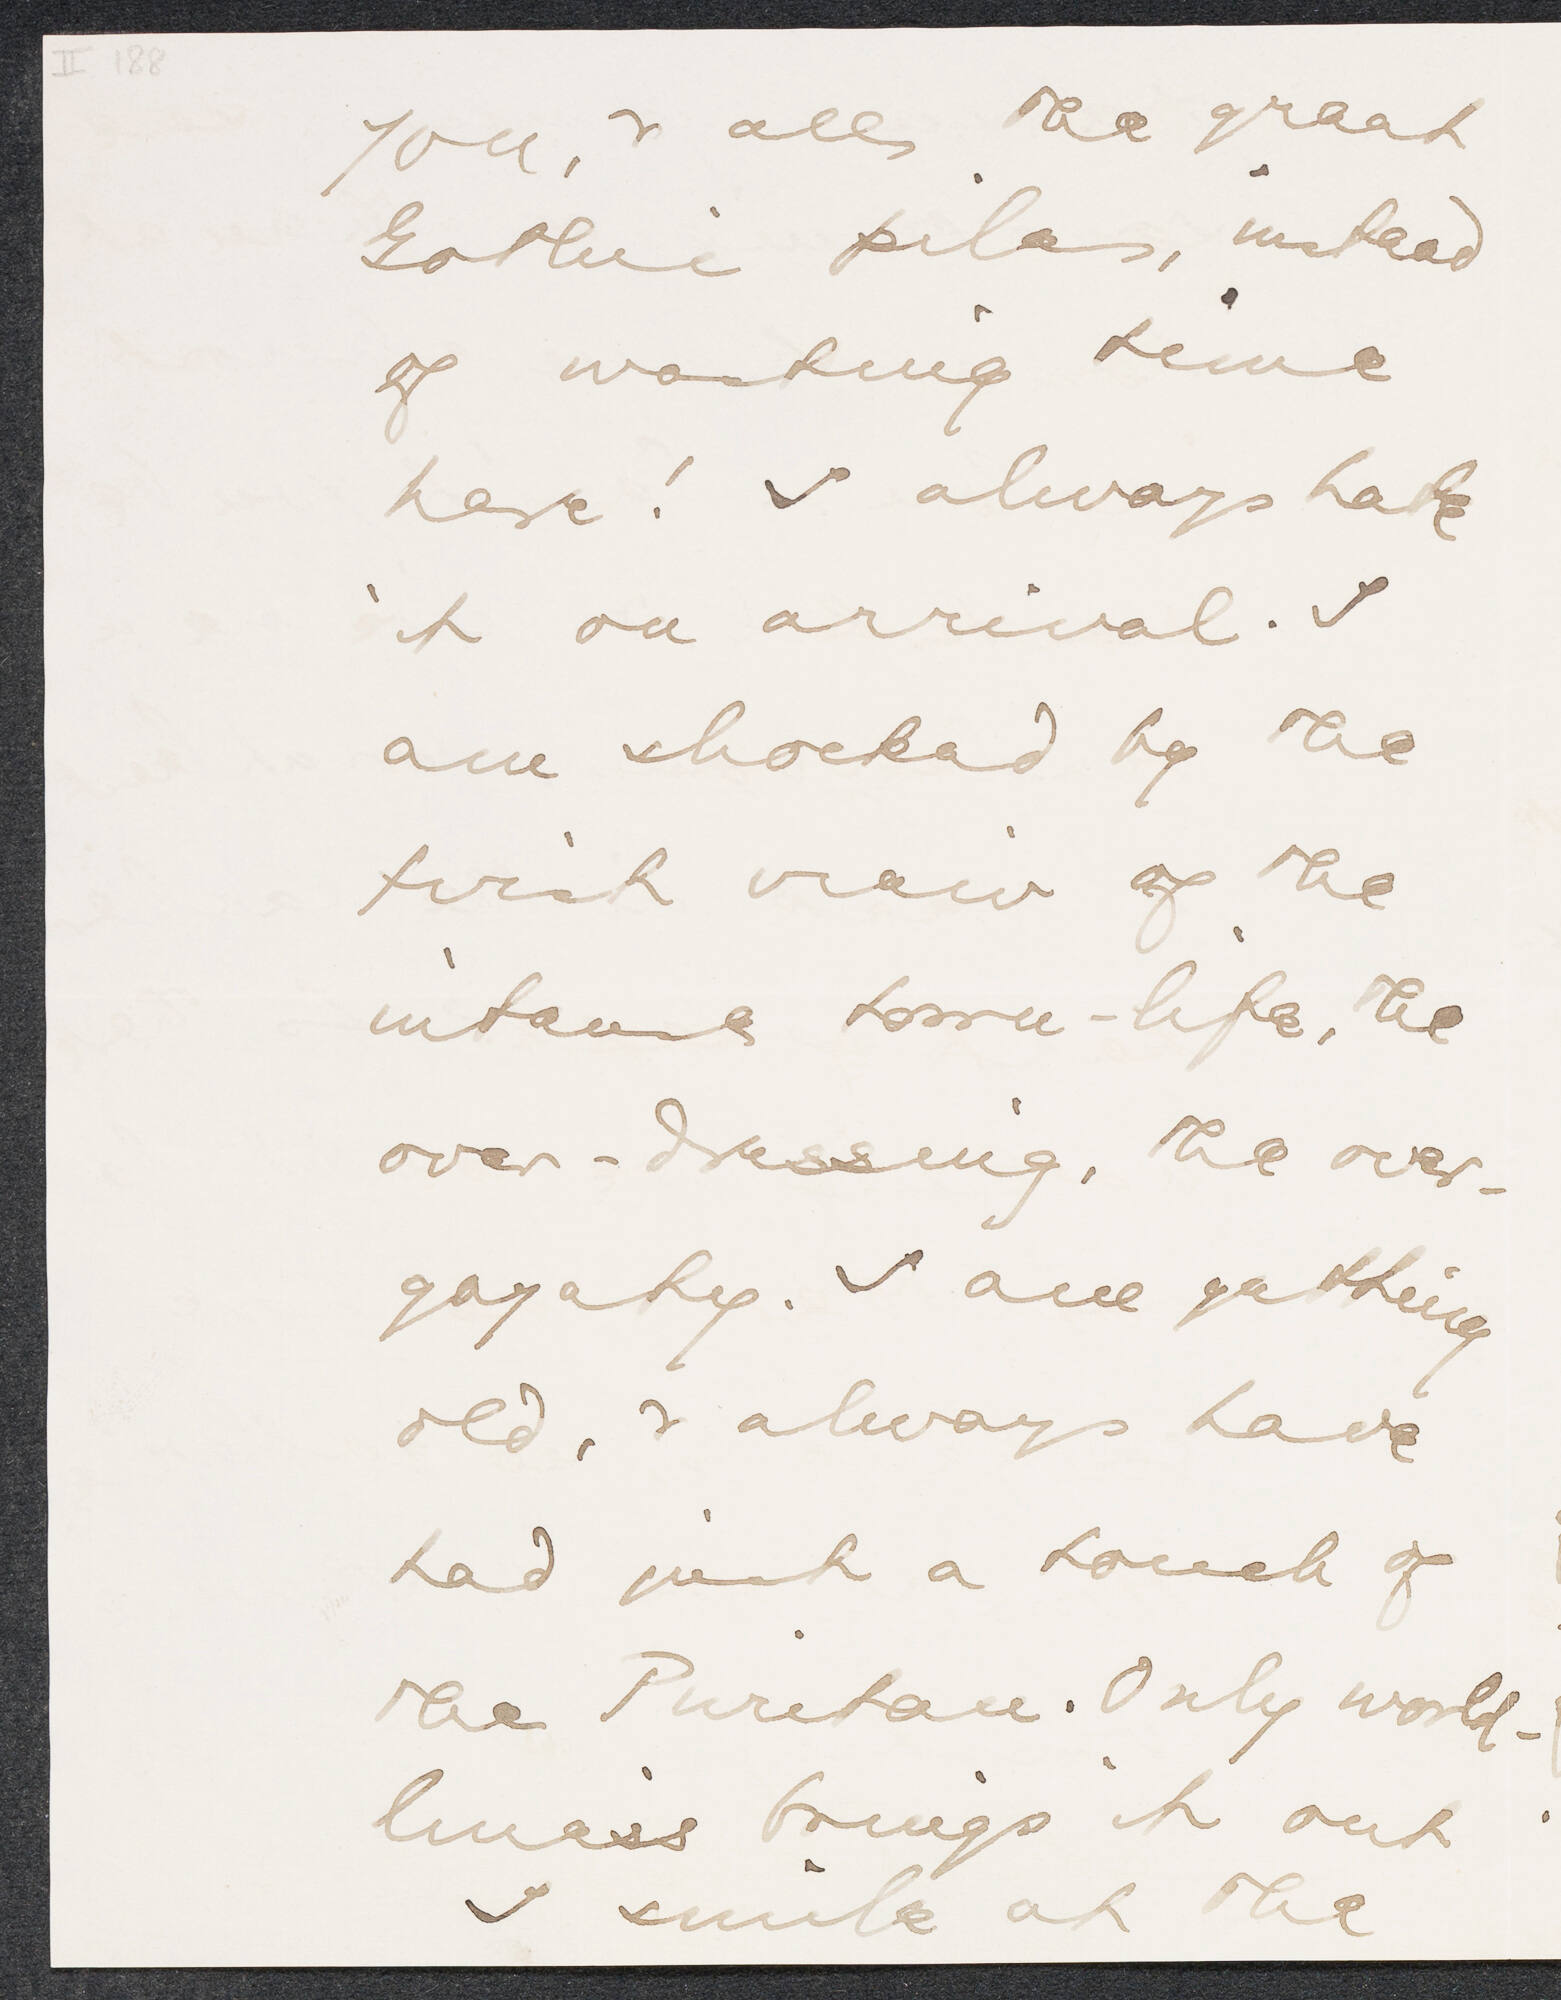 II 188
you, & all the great
Gothic piles, instead
of wasting time
here! I always hate
it on arrival. I
am shocked by the
first view of the
intense town-life, the
over-dressing, the over-
gayety. I am getting
old, & always have
had just a touch of
the Puritan. Only world-
liness brings it out
I smile at the